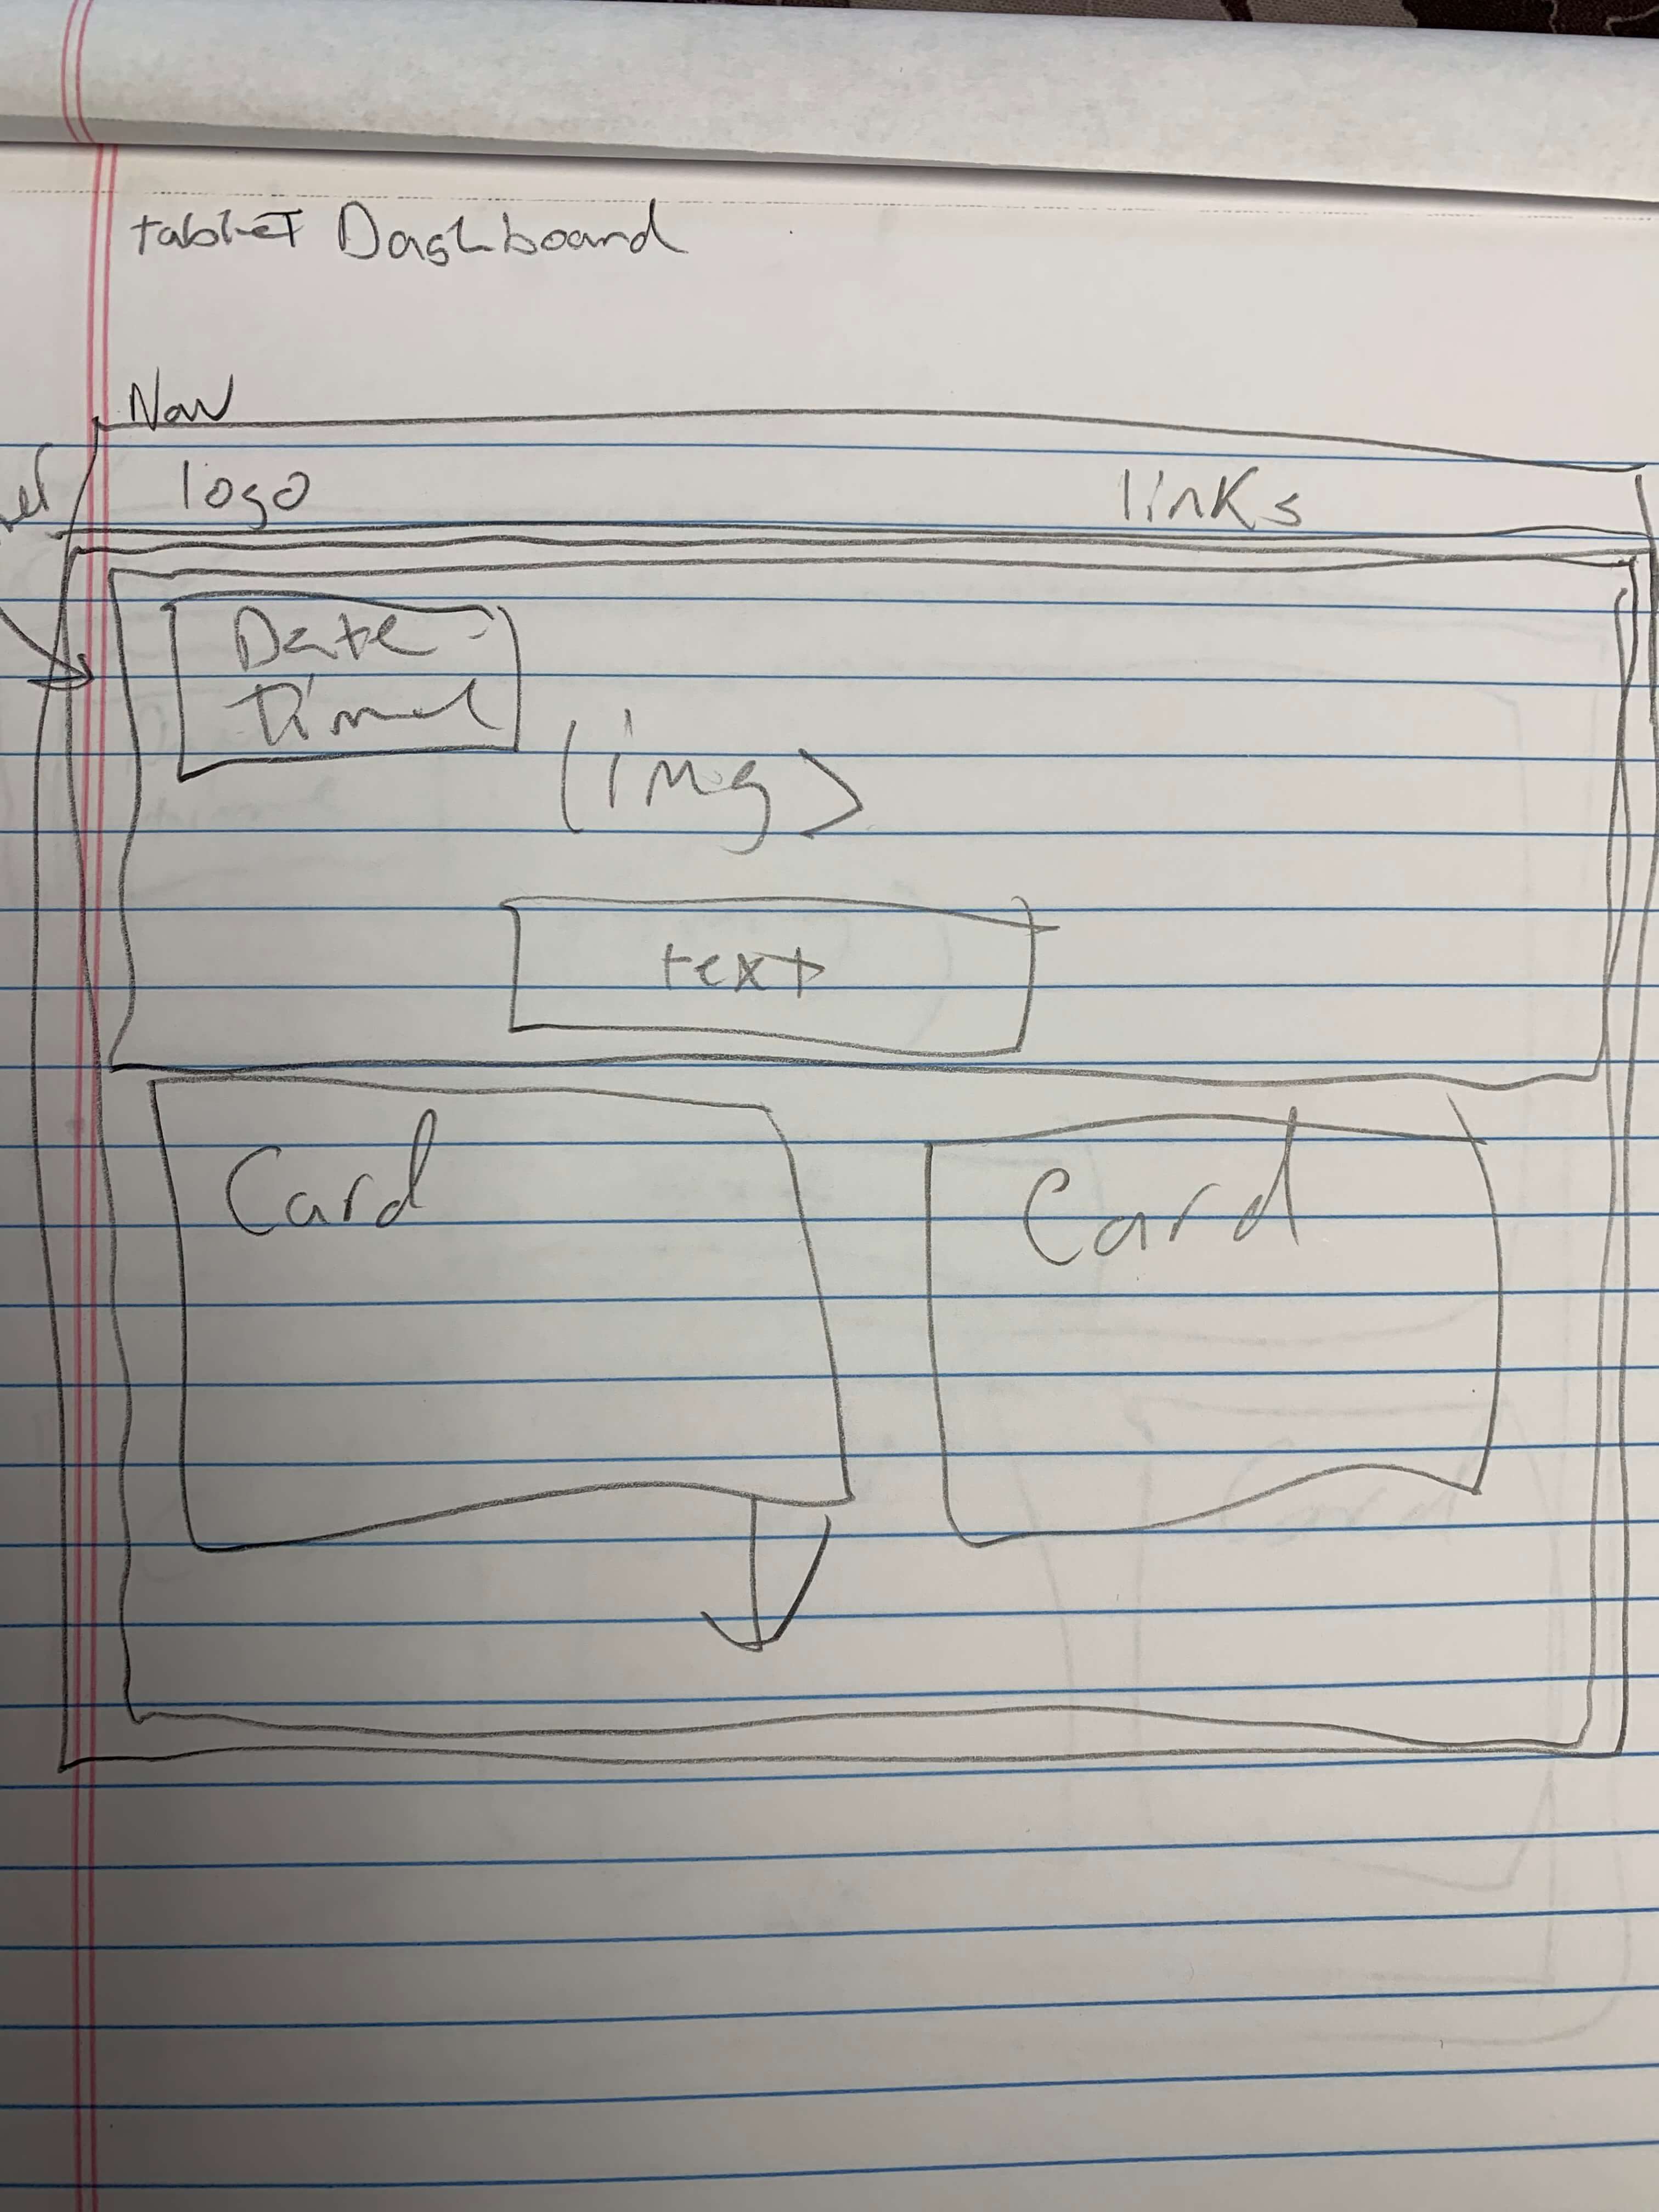 tablet Dashboard
Nav
logo links
Date
Time
(img>
text
Card Card